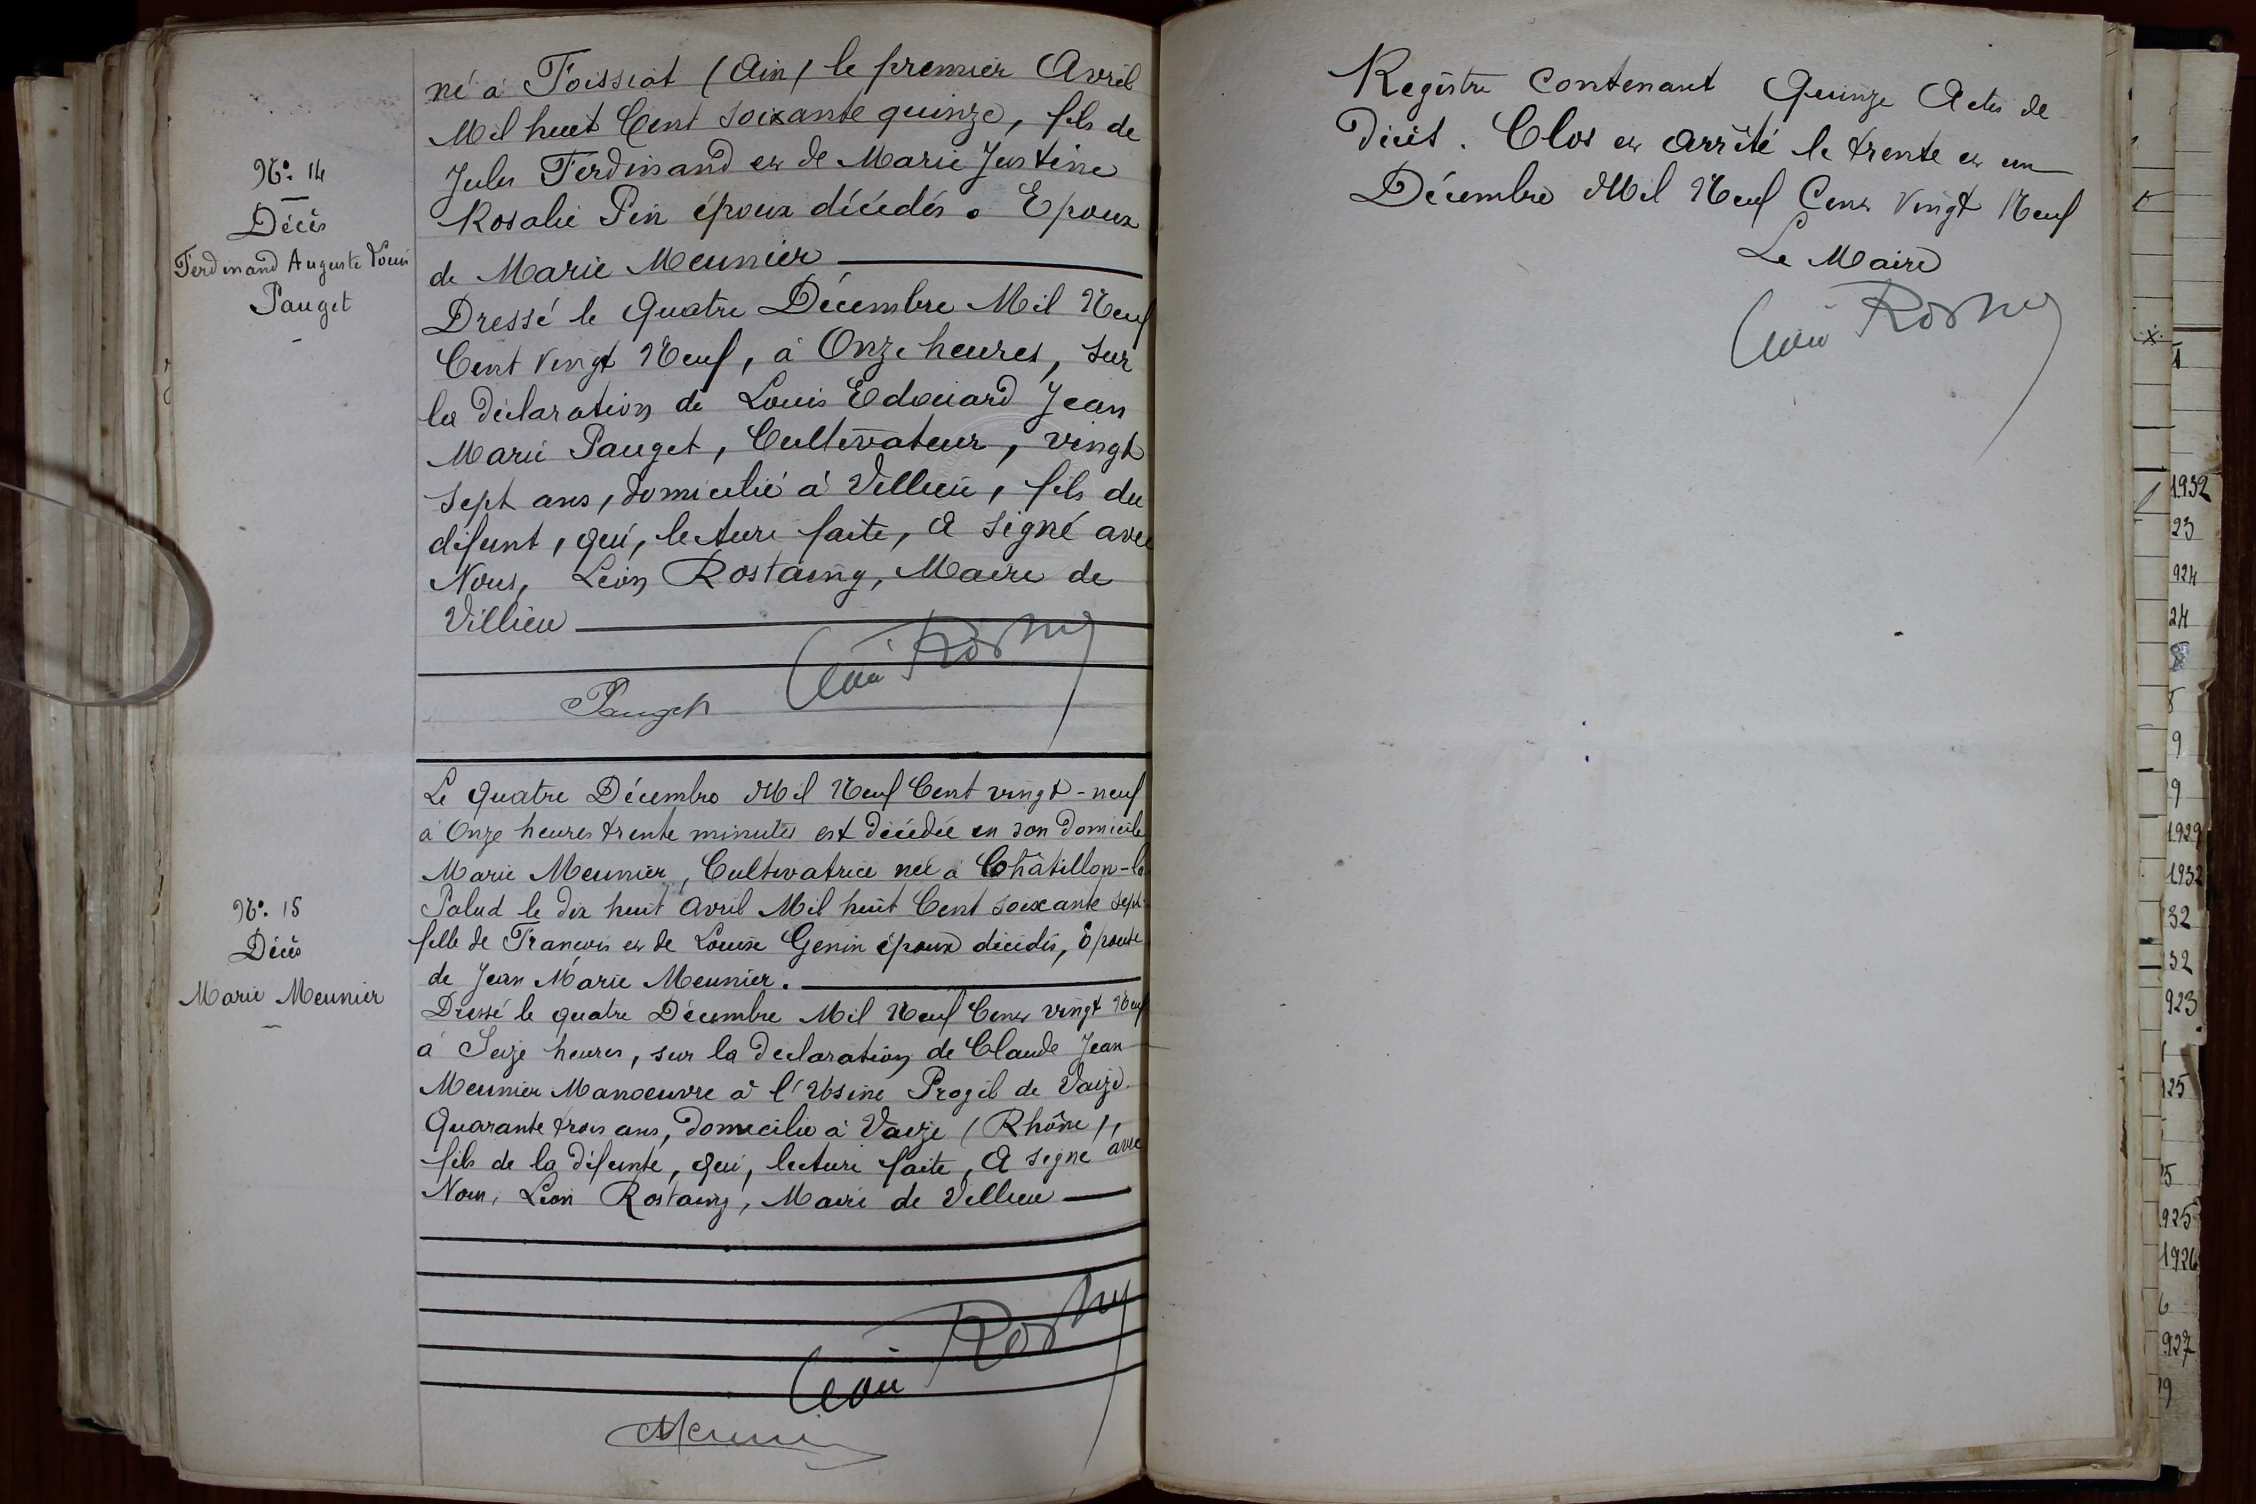 né à Foissiat (Ain) le premier Avril
Mil huit Cent soixante quinze, fils de
Jules Ferdinand et de Marie Justine
Rosalie Pin époux décédés. Epoux
de Marie Meunier
N°. 14
Décès
Ferdinand Auguste Louis
Pauget
Dressé le Quatre Décembre Mil Neuf
Cent Vingt Neuf, à Onze heures, sur
la déclaration de Louis Edouard Jean
Marie Pauget, Cultivateur, vingt
sept ans, domicilié à Villieu, fils du
défunt, qui, lecture faite, a signé avec
Nous, Léon Rostaing, Maire de
Villieu
Pauget
Le quatre Décembre Mil Neuf Cent vingt-neuf
à Onze heures trente minutes est décédée en son domicile
Marie Meunier, Cultivatrice née à Châtillon-la
Palud le dix huit Avril Mil huit Cent soixante sept
fille de François et de Louise Genin époux décédés, Epouse
de Jean Marie Meunier.
N°. 15
Décès
Marie Meunier
Dressé le quatre Décembre Mil Neuf Cent vingt Neuf
à Seize heures, sur la déclaration de Claude Jean
Meunier Manoeuvre à l'Usine Progil de Vaize
Quarante trois ans, domicilié à Vaize (Rhône),
fils de la défunte, qui, lecture faite, a signé avec
Nous, Léon Rostaing, Maire de Villieu
Meunier
Registre Contenant Quinze Actes de
Décès. Clos et arrêté le trente et un
Décembre Mil Neuf Cent Vingt Neuf
Le Maire
1932
23
924
24
9
9
1929
1932
32
32
923
25
5
925
1926
6
927
9